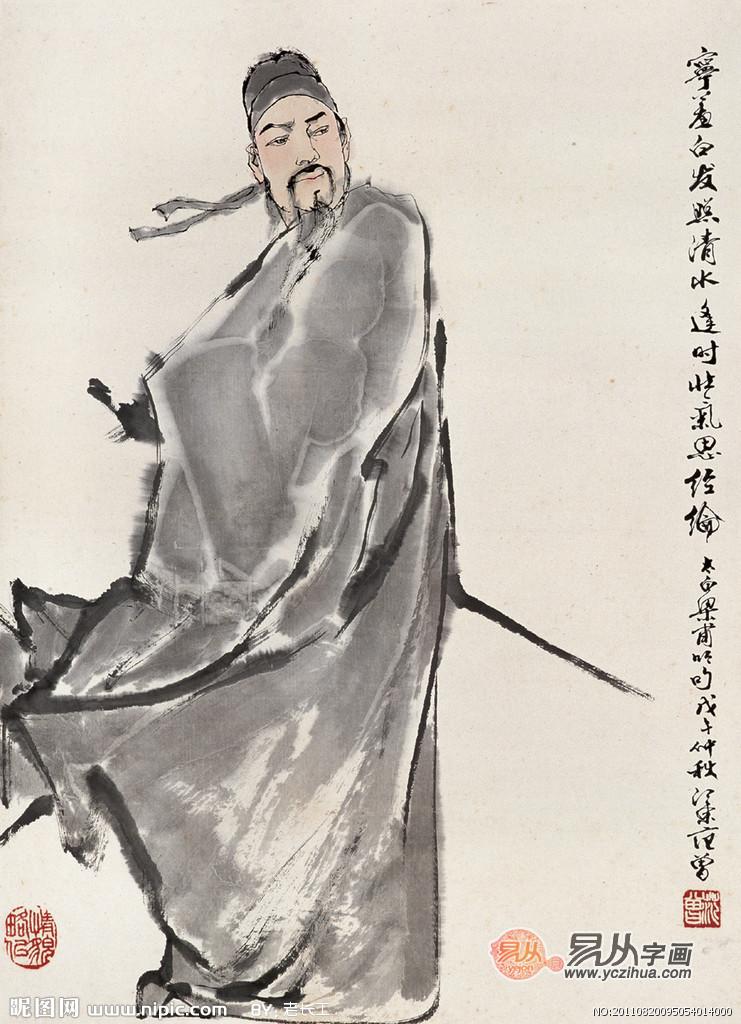 寧羞白发照清水逢时壮氣思经纶
太白梁甫吟句戊午仲秋江東范曾
范曾
情貌略似
易从
易从字画
www.yczihua.com
昵图网 www.nipic.com BY:
NO:20110820095054014000